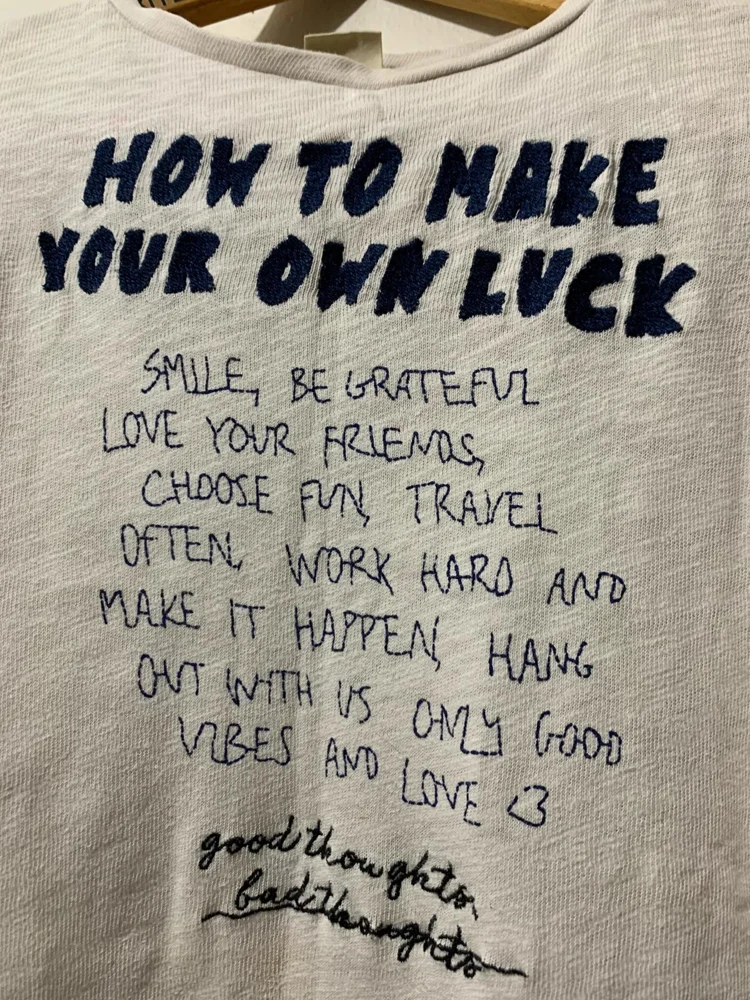 HOW TO MAKE
YOUR OWN LUCK
SMILE, BE GRATEFUL
LOVE YOUR FRIENDS,
CHOOSE FUN, TRAVEL
OFTEN, WORK HARD AND
MAKE IT HAPPEN, HANG
OUT WITH US ONLY GOOD
VIBES AND LOVE <3
good thoughts,
bad thoughts